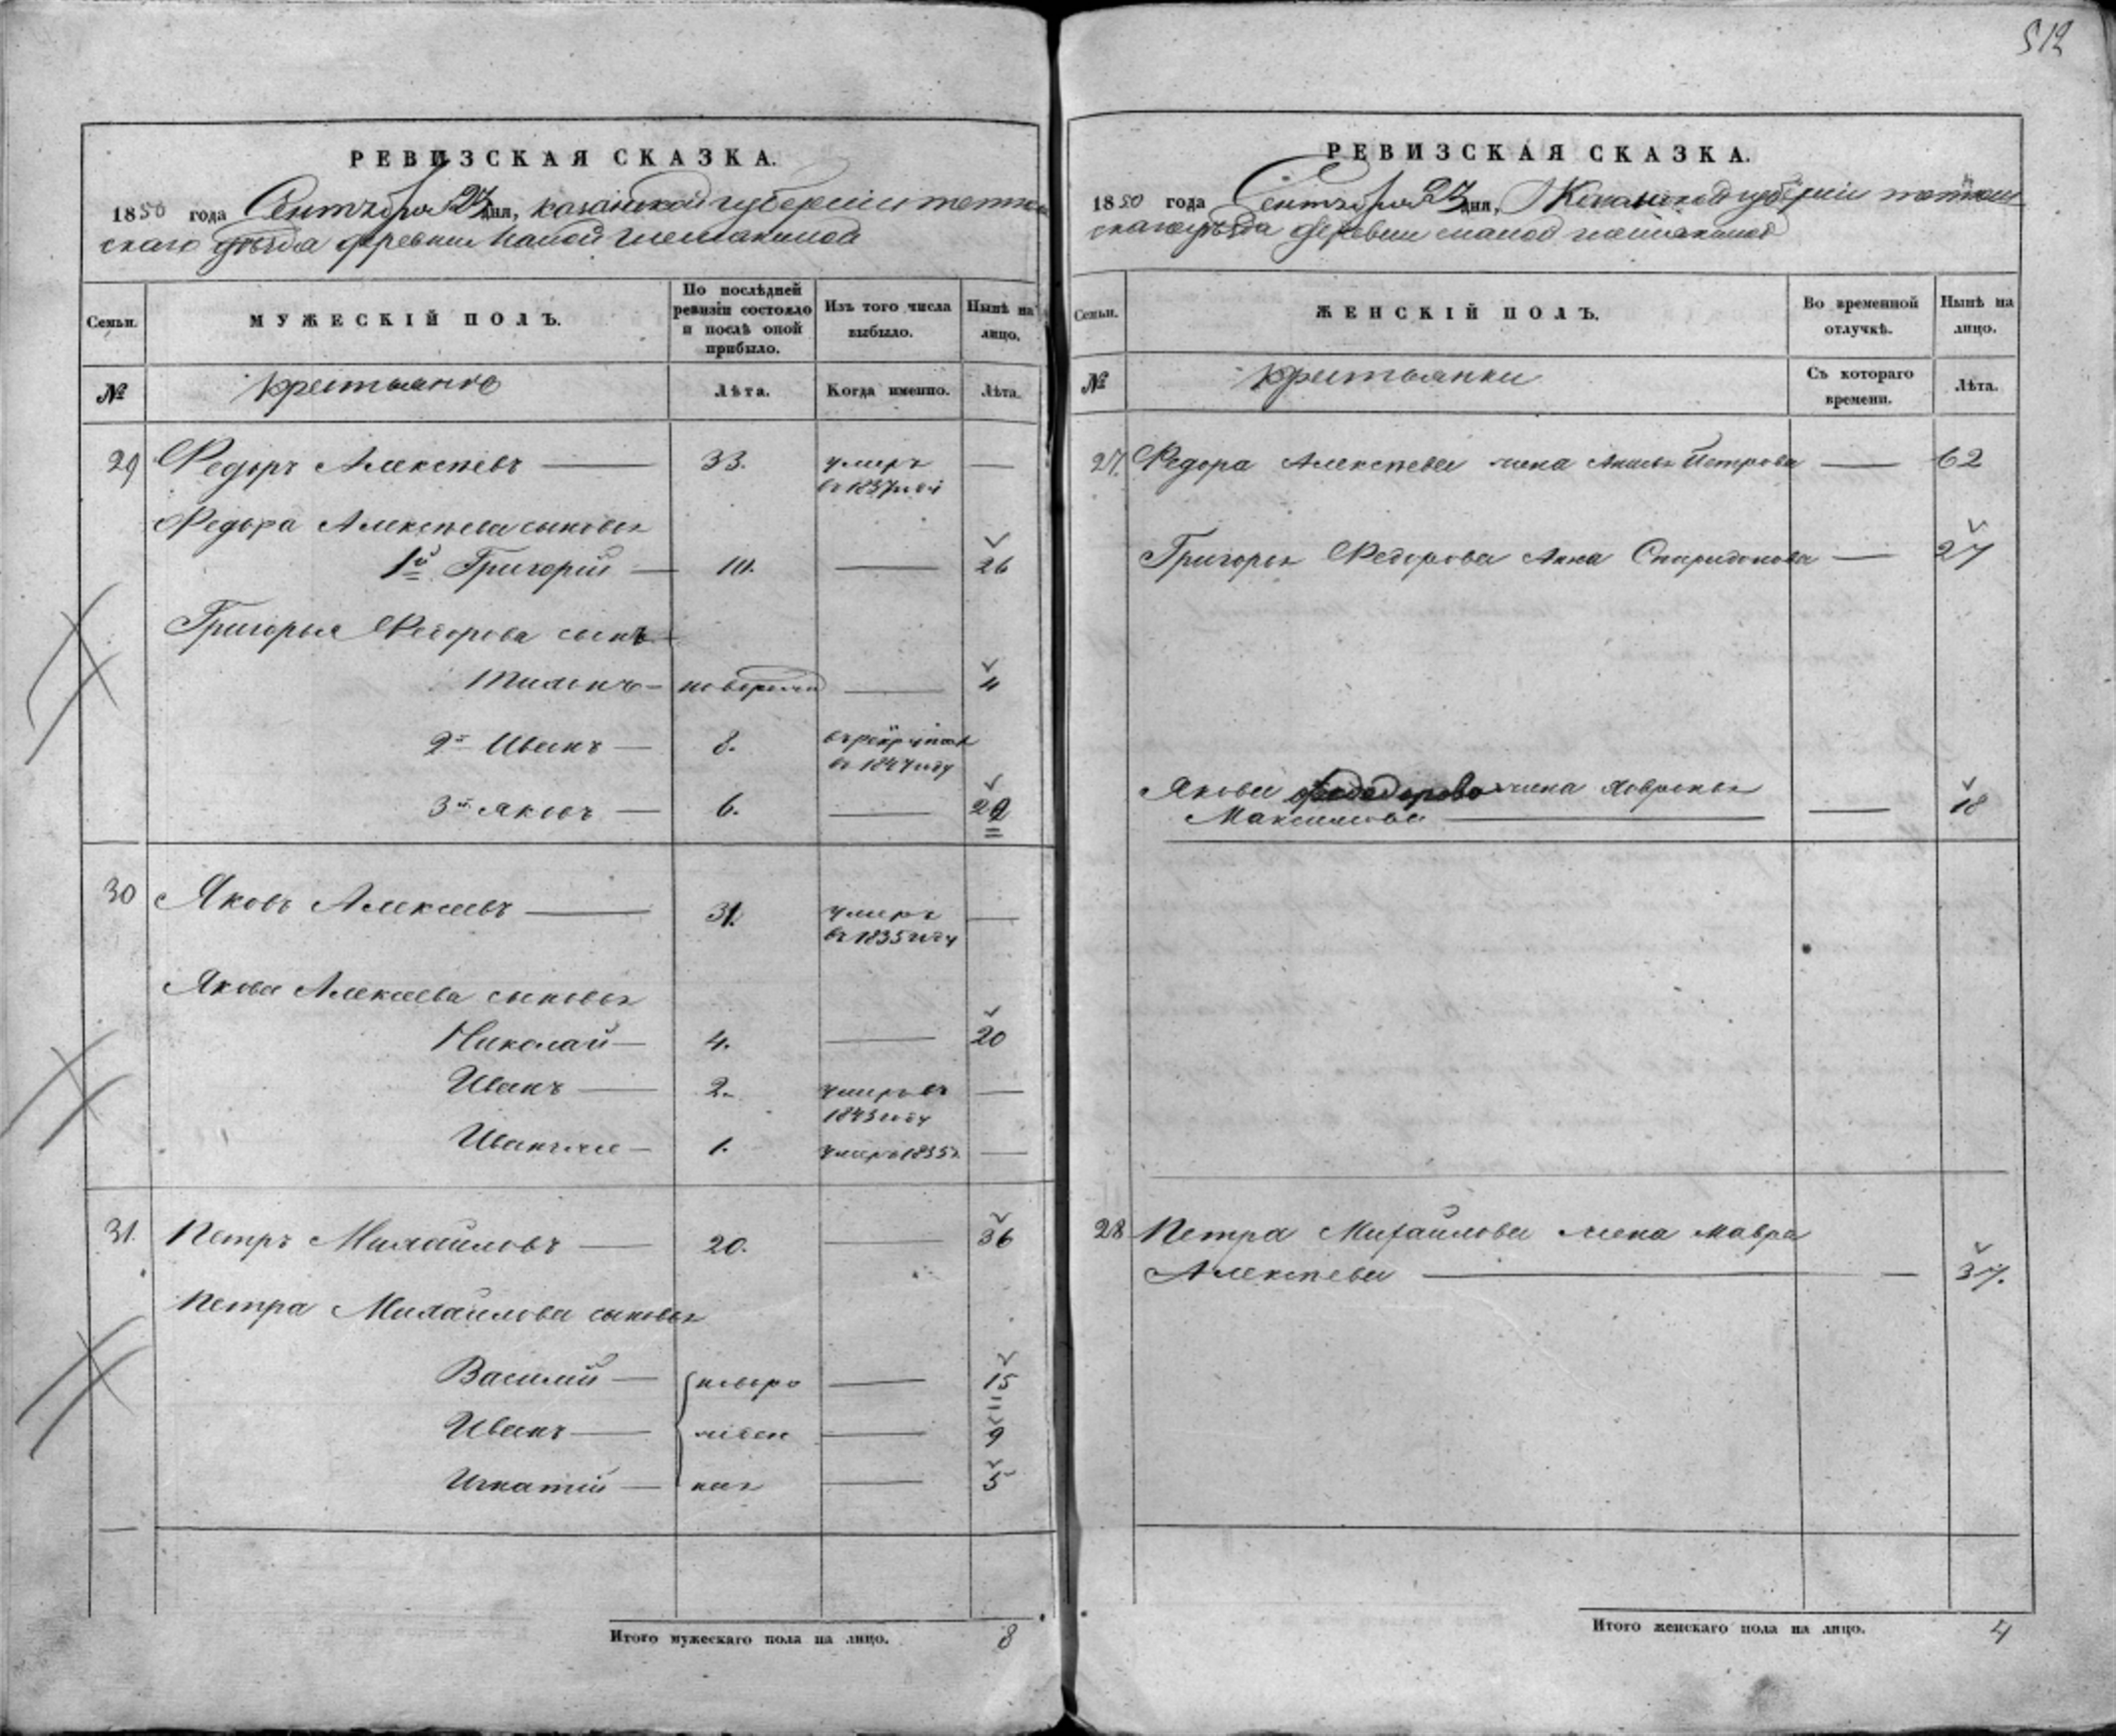 512
РЕВИЗСКАЯ СКАЗКА.
1850 года Сентября 27 дня, казанской губернии тетюш
скаго уѣзда деревни малой шемякиной
Семьи.
МУЖЕСКІЙ ПОЛЪ.
По послѣдней ревизіи состояло и послѣ оной прибыло.
Изъ того числа выбыло.
Нынѣ на лицо.
№
крестьяне
Лѣта.
Когда именно.
Лѣта.
29 Федоръ Алексѣевъ — 33. умеръ —
въ 1837 год
Федора Алексѣева сыновья
1й Григорій — 10. — 26
Григорья Федорова сынъ —
— новорож — 4
2й Иванъ — 8. въ рекруты
въ 1847 году
3й Яковъ — 6. — 22
30 Яковъ Алексеевъ — 31. умеръ —
въ 1835 году
Якова Алексеева сыновья
Николай — 4. — 20
Иванъ — 2. умеръ въ —
1843 году
Иванъ же — 1. умеръ 1835 —
31. Петръ Михайловъ — 20. — 36
Петра Михайлова сыновья
Василий — новоро — 15
Иванъ — жден — 9
Игнатій — ныя — 5
Итого мужескаго пола на лицо. 8
РЕВИЗСКАЯ СКАЗКА.
1850 года Сентября 27 дня, Казанской губерніи тетюш
скаго уѣзда деревни малой шемякиной
Семьи.
ЖЕНСКІЙ ПОЛЪ.
Во временной отлучкѣ.
Нынѣ на лицо.
№
крестьянки
Съ котораго времени.
Лѣта.
27. Федора Алексѣева жена Петрова — 62
Григорья Федорова Анна Спиридонова — 27
Якова Федорова жена
Максимова — — 18
28 Петра Михайлова жена Мавра
Алексѣева — — 37.
Итого женскаго пола на лицо. 4